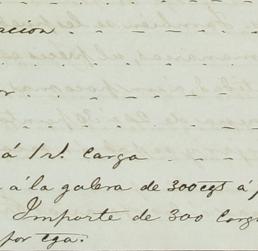 acion
á 1 rl. Carga
á la galera de 300 cgs á
Importe de 300 Carg
por cga.